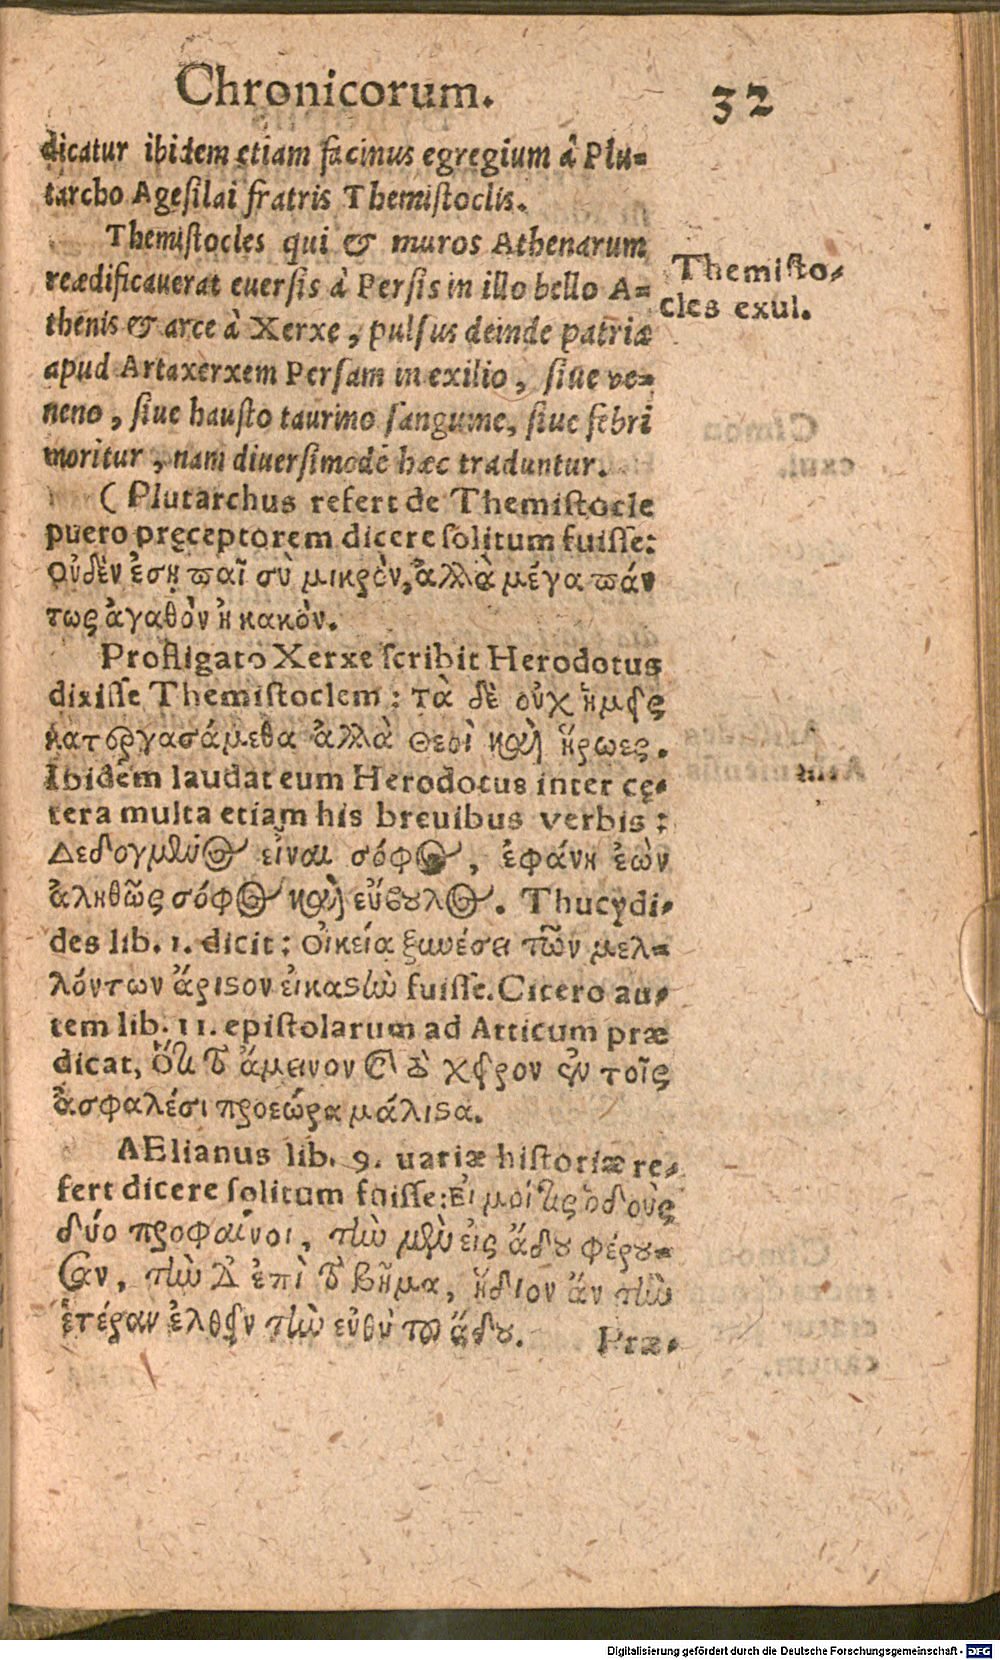 Chronicorum. 32
dicatur ibidem etiam facinus egregium à Plu=
tarcho Agesilai fratris Themistoclis.
Themistocles qui & muros Athenarum
reædificauerat euersis à Persis in illo bello A=
thenis & arce à Xerxe, pulsus deinde patria
apud Artaxerxem Persam in exilio, siue ve=
neno, siue hausto taurino sanguine, siue febri
moritur, nam diuersimodè hæc traduntur.
Themisto-
cles exul.
(Plutarchus refert de Themistocle
puero pręceptorem dicere solitum fuisse:
οὐδὲν ἔσῃ παῖ σὺ μικρὸν, ἀλλὰ μέγα πάν
τως ἀγαθὸν ἢ κακὸν.
Profligato Xerxe scribit Herodotus
dixisse Themistoclem: τὰ δὲ οὐχ ἡμεῖς
κατοργασάμεθα ἀλλὰ θεοὶ καὶ ἥρωες.
Ibidem laudat eum Herodotus inter cę-
tera multa etiam his breuibus verbis:
Δεδογμένος εἶναι σόφος, ἐφάνη ἐὼν
ἀληθῶς σόφος καὶ εὔβουλος. Thucydi-
des lib. 1. dicit: οἰκεία ξυνέσει τῶν μελ=
λόντων ἄριστον εἰκαστὴν fuisse. Cicero au-
tem lib. 11. epistolarum ad Atticum præ
dicat, ὅτι τὸ ἄμεινον καὶ τὸ χεῖρον ἐν τοῖς
ἀσφαλέσι προεώρα μάλιστα.
AElianus lib. 9. uariæ historiæ re-
fert dicere solitum fuisse: εἰ μοί τις ὁδοὺς
δύο προφαίνοι, τὴν μὲν εἰς ᾅδου φέρου=
σαν, τὴν δὲ ἐπὶ τὸ βῆμα, ἥδιον ἂν τὴν
ἑτέραν ἐλθεῖν τὴν εὐθὺ τοῦ ᾅδου. Præ-
Digitalisierung gefördert durch die Deutsche Forschungsgemeinschaft - DFG